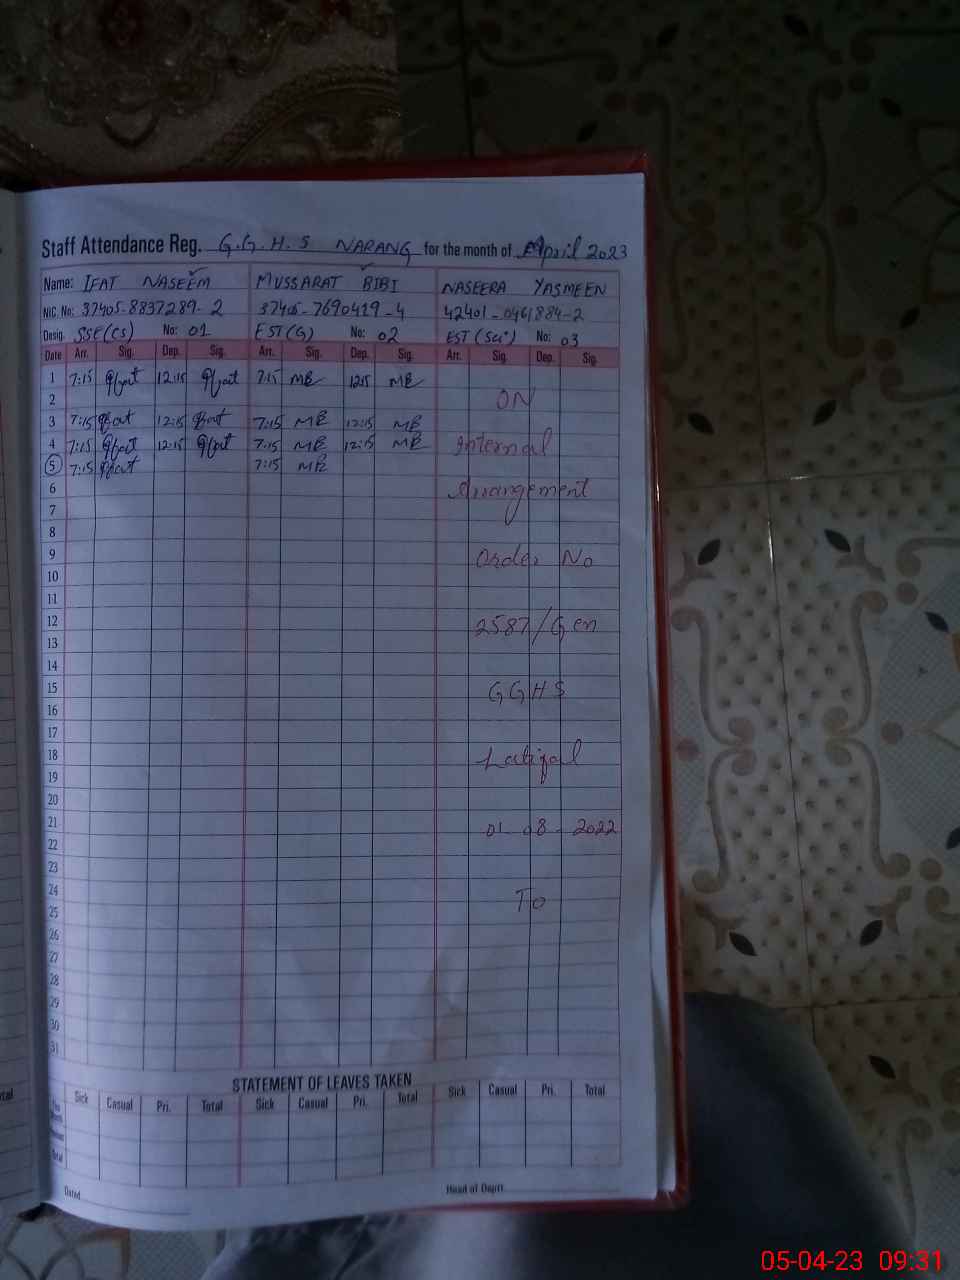 Staff Attendance Reg. G.G.H.S NARANG for the month of April 2023
Name: IFAT NASEEM MUSSARAT BIBI NASEERA YASMEEN
NIC. No: 37405-8837289-2 37405-7690419-4 42401-0461884-2
Desig. SSE(CS) No: 01 EST(G) No: 02 EST(Sci) No: 03
Date Arr. Sig. Dep. Sig. Arr. Sig. Dep. Sig. Arr. Sig. Dep. Sig.
1 7:15 Iffat 12:15 Iffat 7:15 MB 12:15 MB
2 ON
3 7:15 Iffat 12:15 Iffat 7:15 MB 12:15 MB
4 7:15 Iffat 12:15 Iffat 7:15 MB 12:15 MB Internal
5 7:15 Iffat 7:15 MB
6 Arrangement
7
8
9 Order No
10
11
12 2587/Gen
13
14
15 GGHS
16
17
18 Latifal
19
20
21 01-08-2022
22
23
24 To
25
26
27
28
29
30
31
STATEMENT OF LEAVES TAKEN
Sick Casual Pri. Total Sick Casual Pri. Total Sick Casual Pri. Total
Total
Dated
Head of Deptt.
05-04-23 09:31